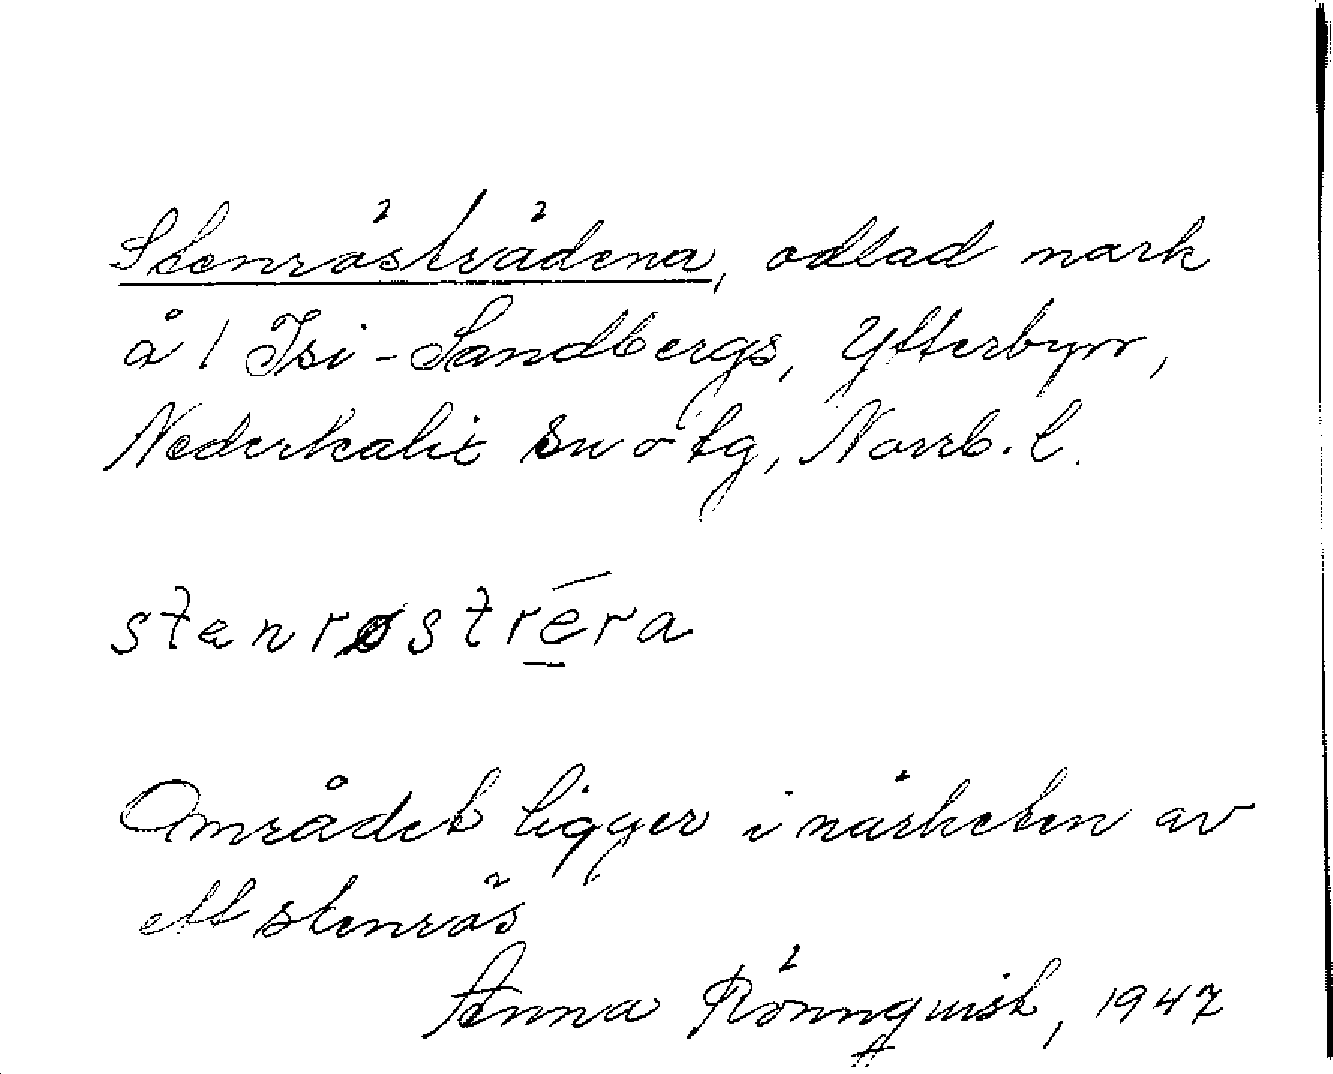 Stenrösträdena, odlad mark
å 1 Isi-Sandbergs, Ytterbyn,
Nederkalix sn o tg, Norrb. l.
stenrøstrēra
Området ligger i närheten av
ett stenrös
Anna Rönnquist, 1947